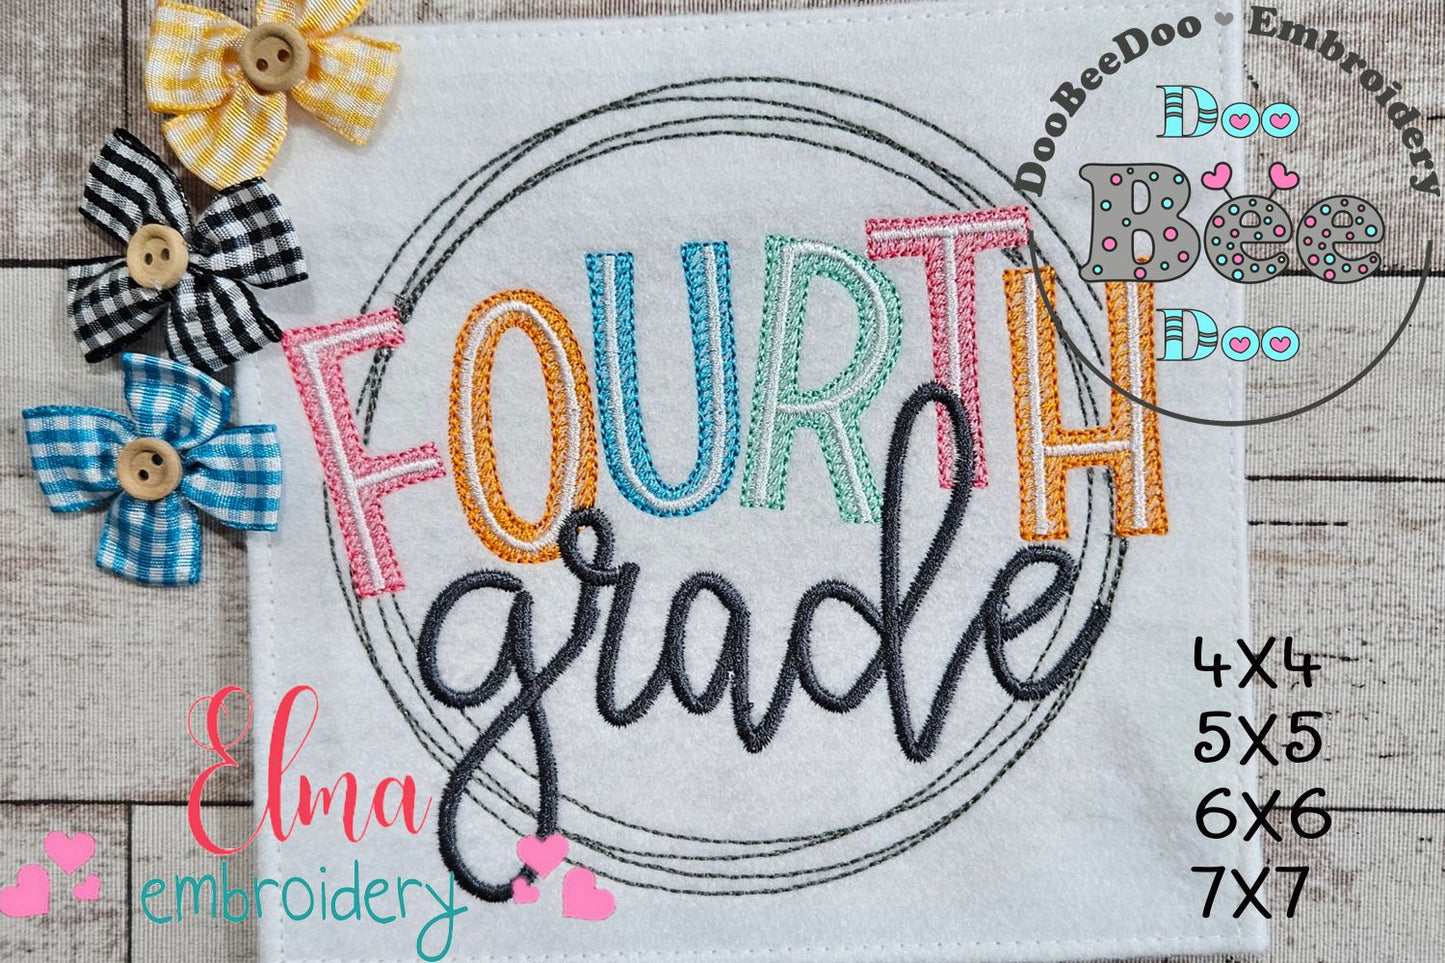 DooBeeDoo ❤ Embroidery
Doo
Bee
Doo
FOURTH
grade
4X4
5X5
6X6
7X7
Elma
embroidery